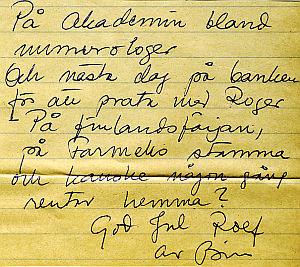 På Akademin bland
numurologer
Och nästa dag på banken
för att prata med Roger
På finlandsfärjan,
på Farmeks stamma
och kanske någon gång
rentav hemma?
God Jul Rolf
av